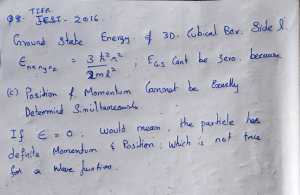 Q8. TIFR
JEST - 2016.
Ground State Energy of 3D. Cubical Box. Side l.
E nx ny nz = 3 ħ² π² / 2ml² , EG.S Cant be zero. because
(c) Position & Momentum Cannot be Exactly
Determind Simultaneously.
If E = 0. would mean. the particle has
definite Momentum & Position. Which is not true
for a wave function.